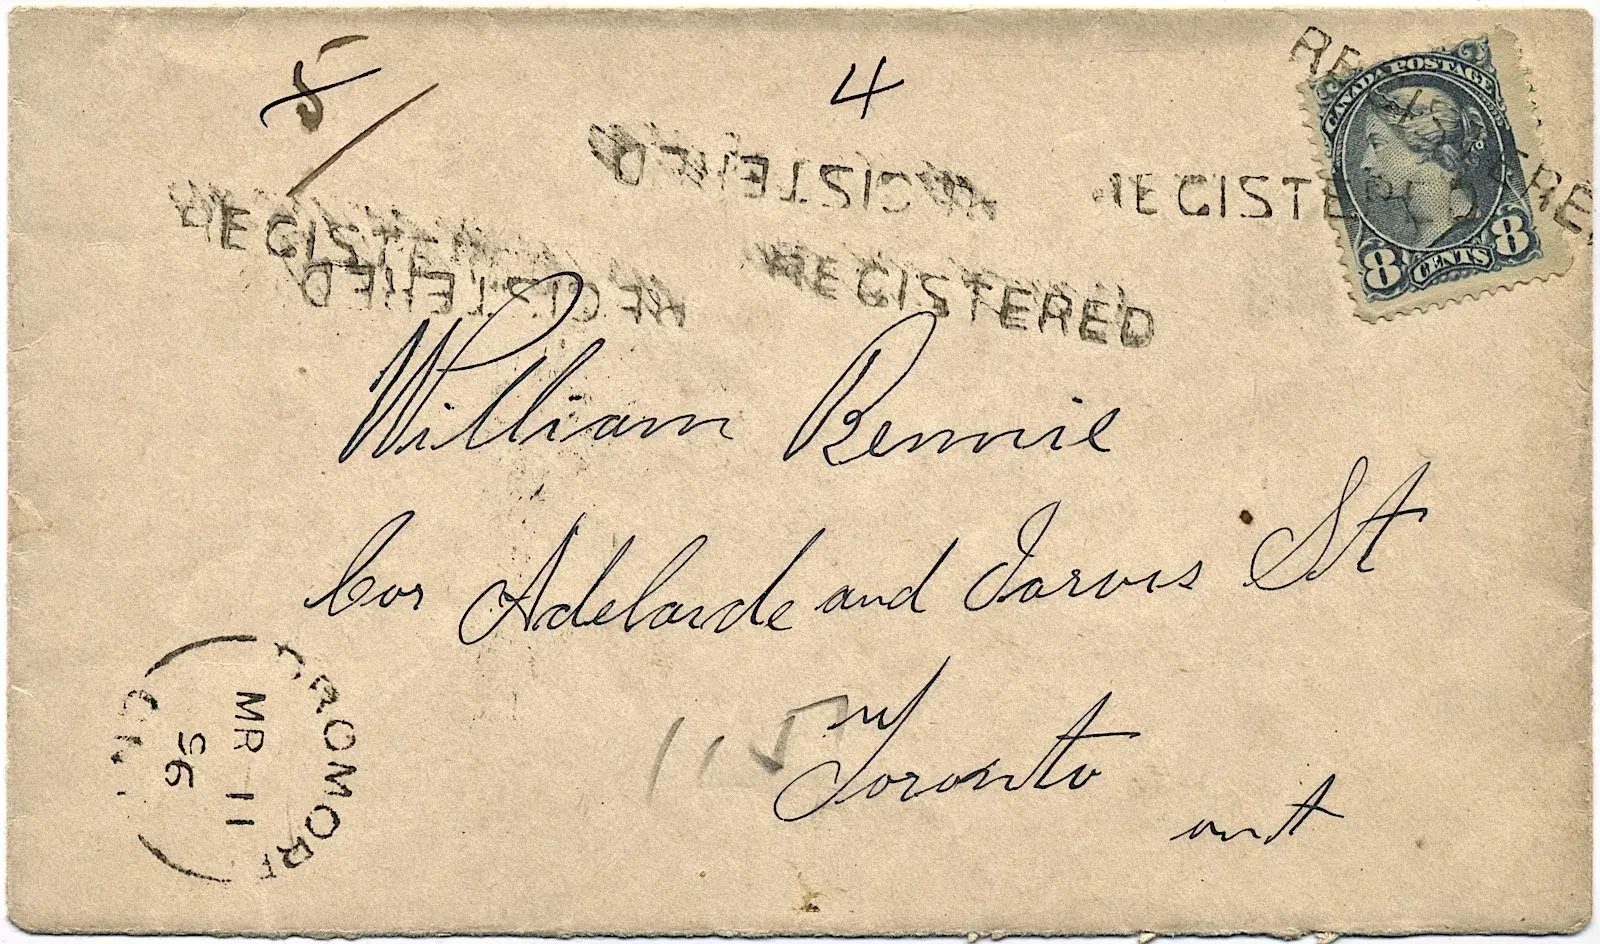 5 4
REGISTERED
REGISTERED
REGISTERED
REGISTERED
REGISTERED
REGISTERED
CANADA POSTAGE
8 CENTS 8
William Rennie
Cor Adelaide and Jarvis St
Toronto
ont
115
CROMOR
MR 11
96
ON